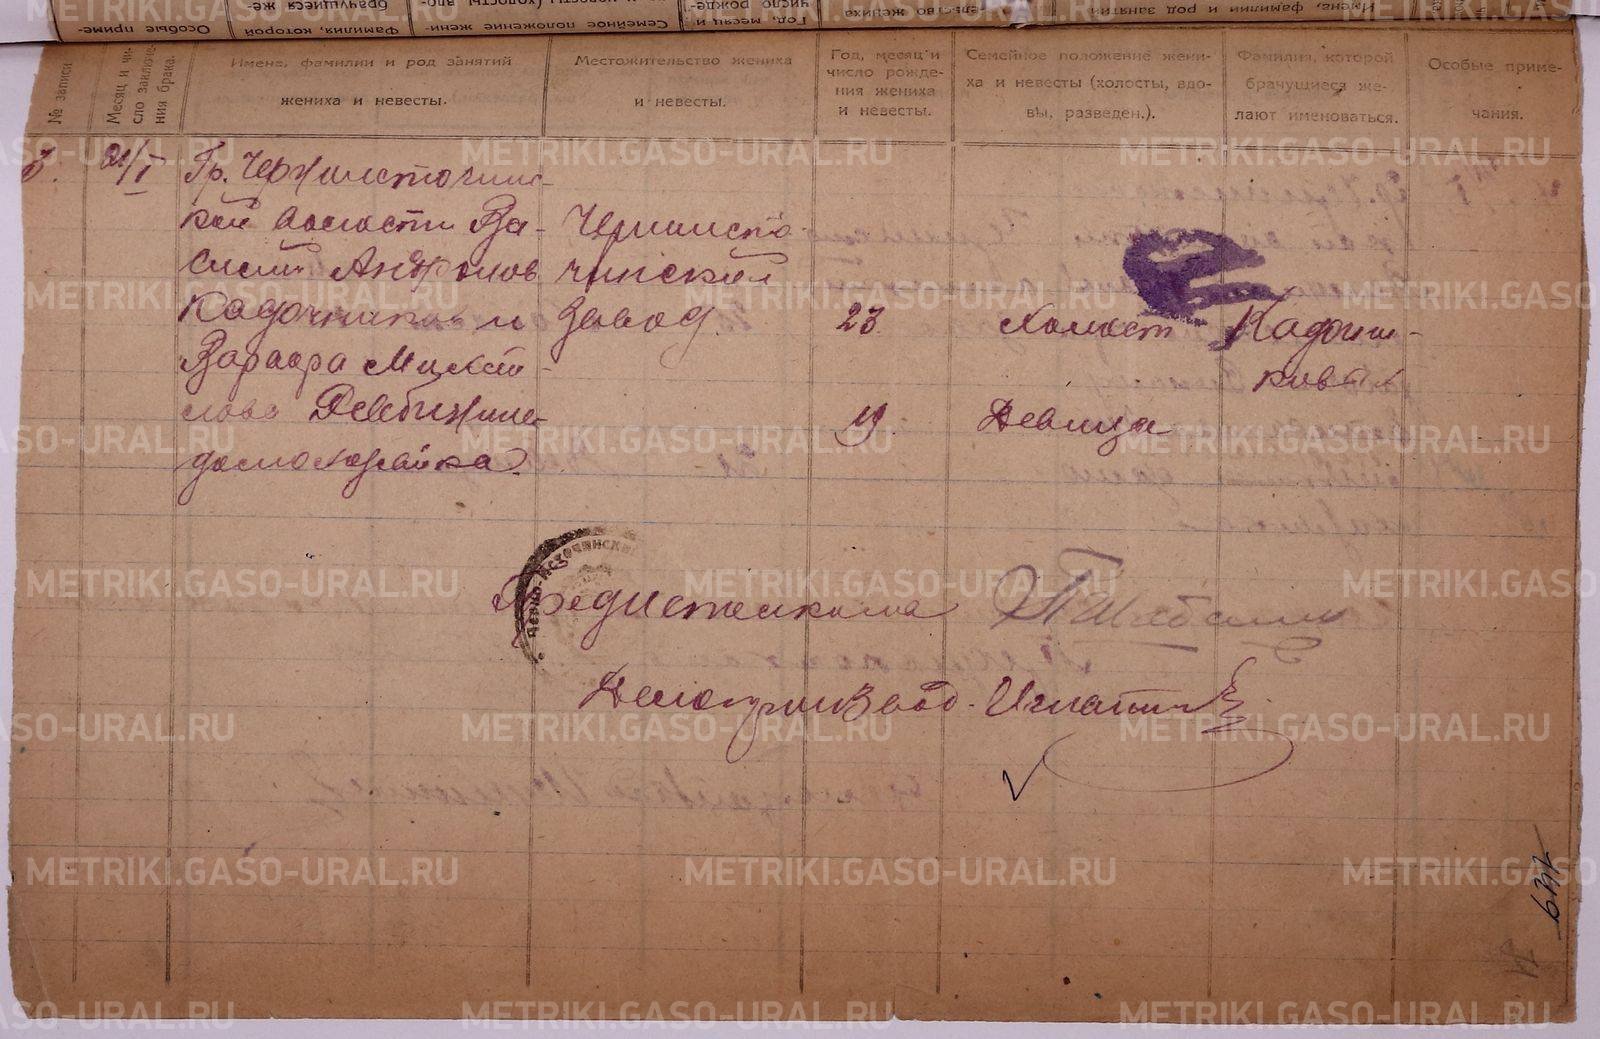 № записи
Месяц и чи-
сло заключе-
ния брака.
Имена, фамилии и род занятий
жениха и невесты.
Местожительство жениха
и невесты.
Год, месяц и
число рожде-
ния жениха
и невесты.
Семейное положение жени-
ха и невесты (холосты, вдо-
вы, разведен.).
Фамилия, которой
брачущиеся же-
лают именоваться.
Особые приме-
чания.
3.
21/I
Гр. Черноисточин-
ской волости Ва-
силий Андронов
Кадочников и
Варвара
домохозяйка
Черноисто
чинский
завод.
23
19.
Холост
Девица
Кадочни-
ковы
ЧЕРНО-ИСТОЧИНСКИЙ
Предисполкома
Делопроизвод. Игнатьев
METRIKI.GASO-URAL.RU